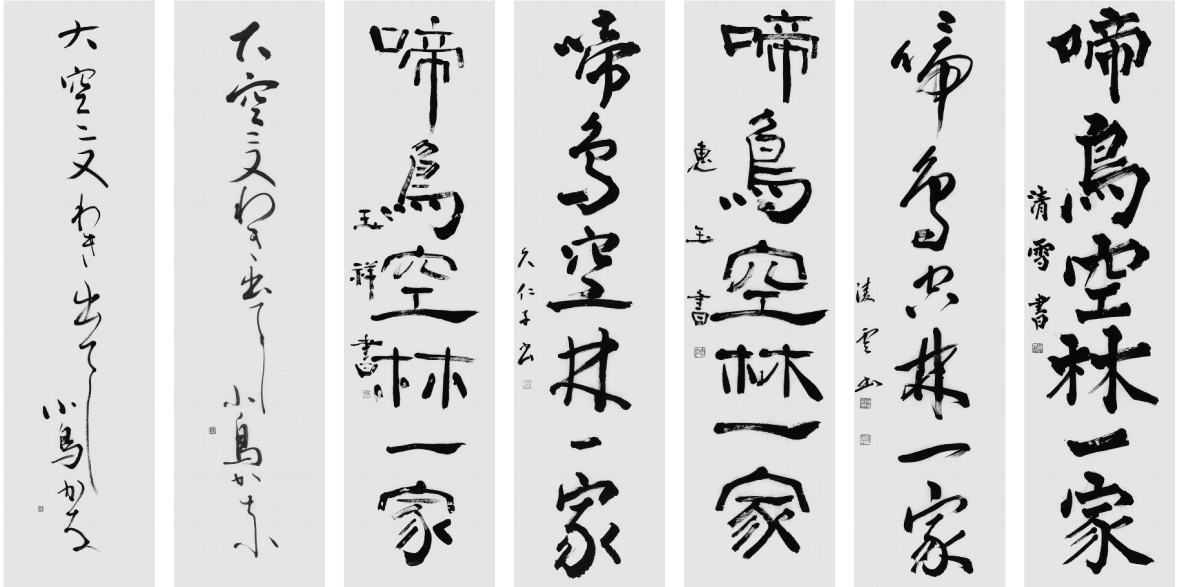 啼鳥空林一家
清雪書
啼鳥空林一家
凌雲书
啼鳥空林一家
惠玉書
啼鳥空林一家
久仁子书
啼鳥空林一家
玉祥書
大空に又わき出でし小鳥かな
大空に又わき出でし小鳥かな